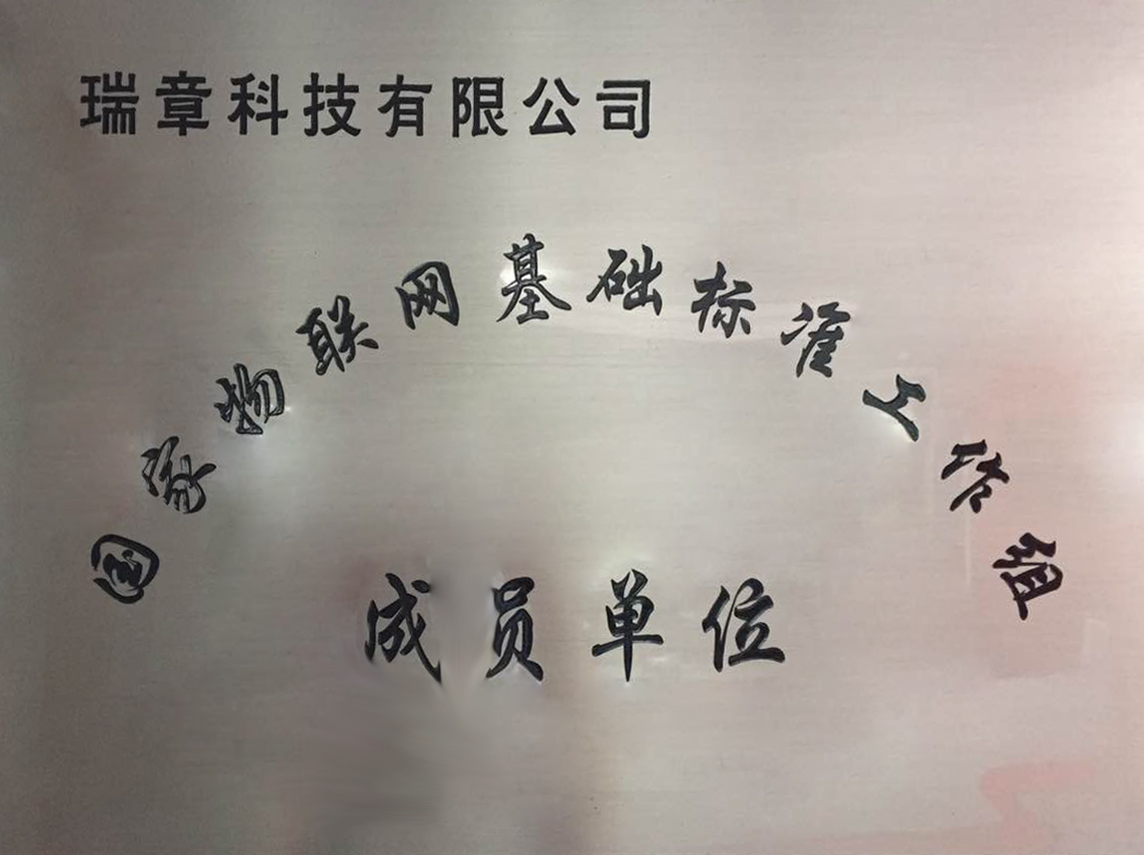 瑞章科技有限公司
国家物联网基础标准工作组
成员单位